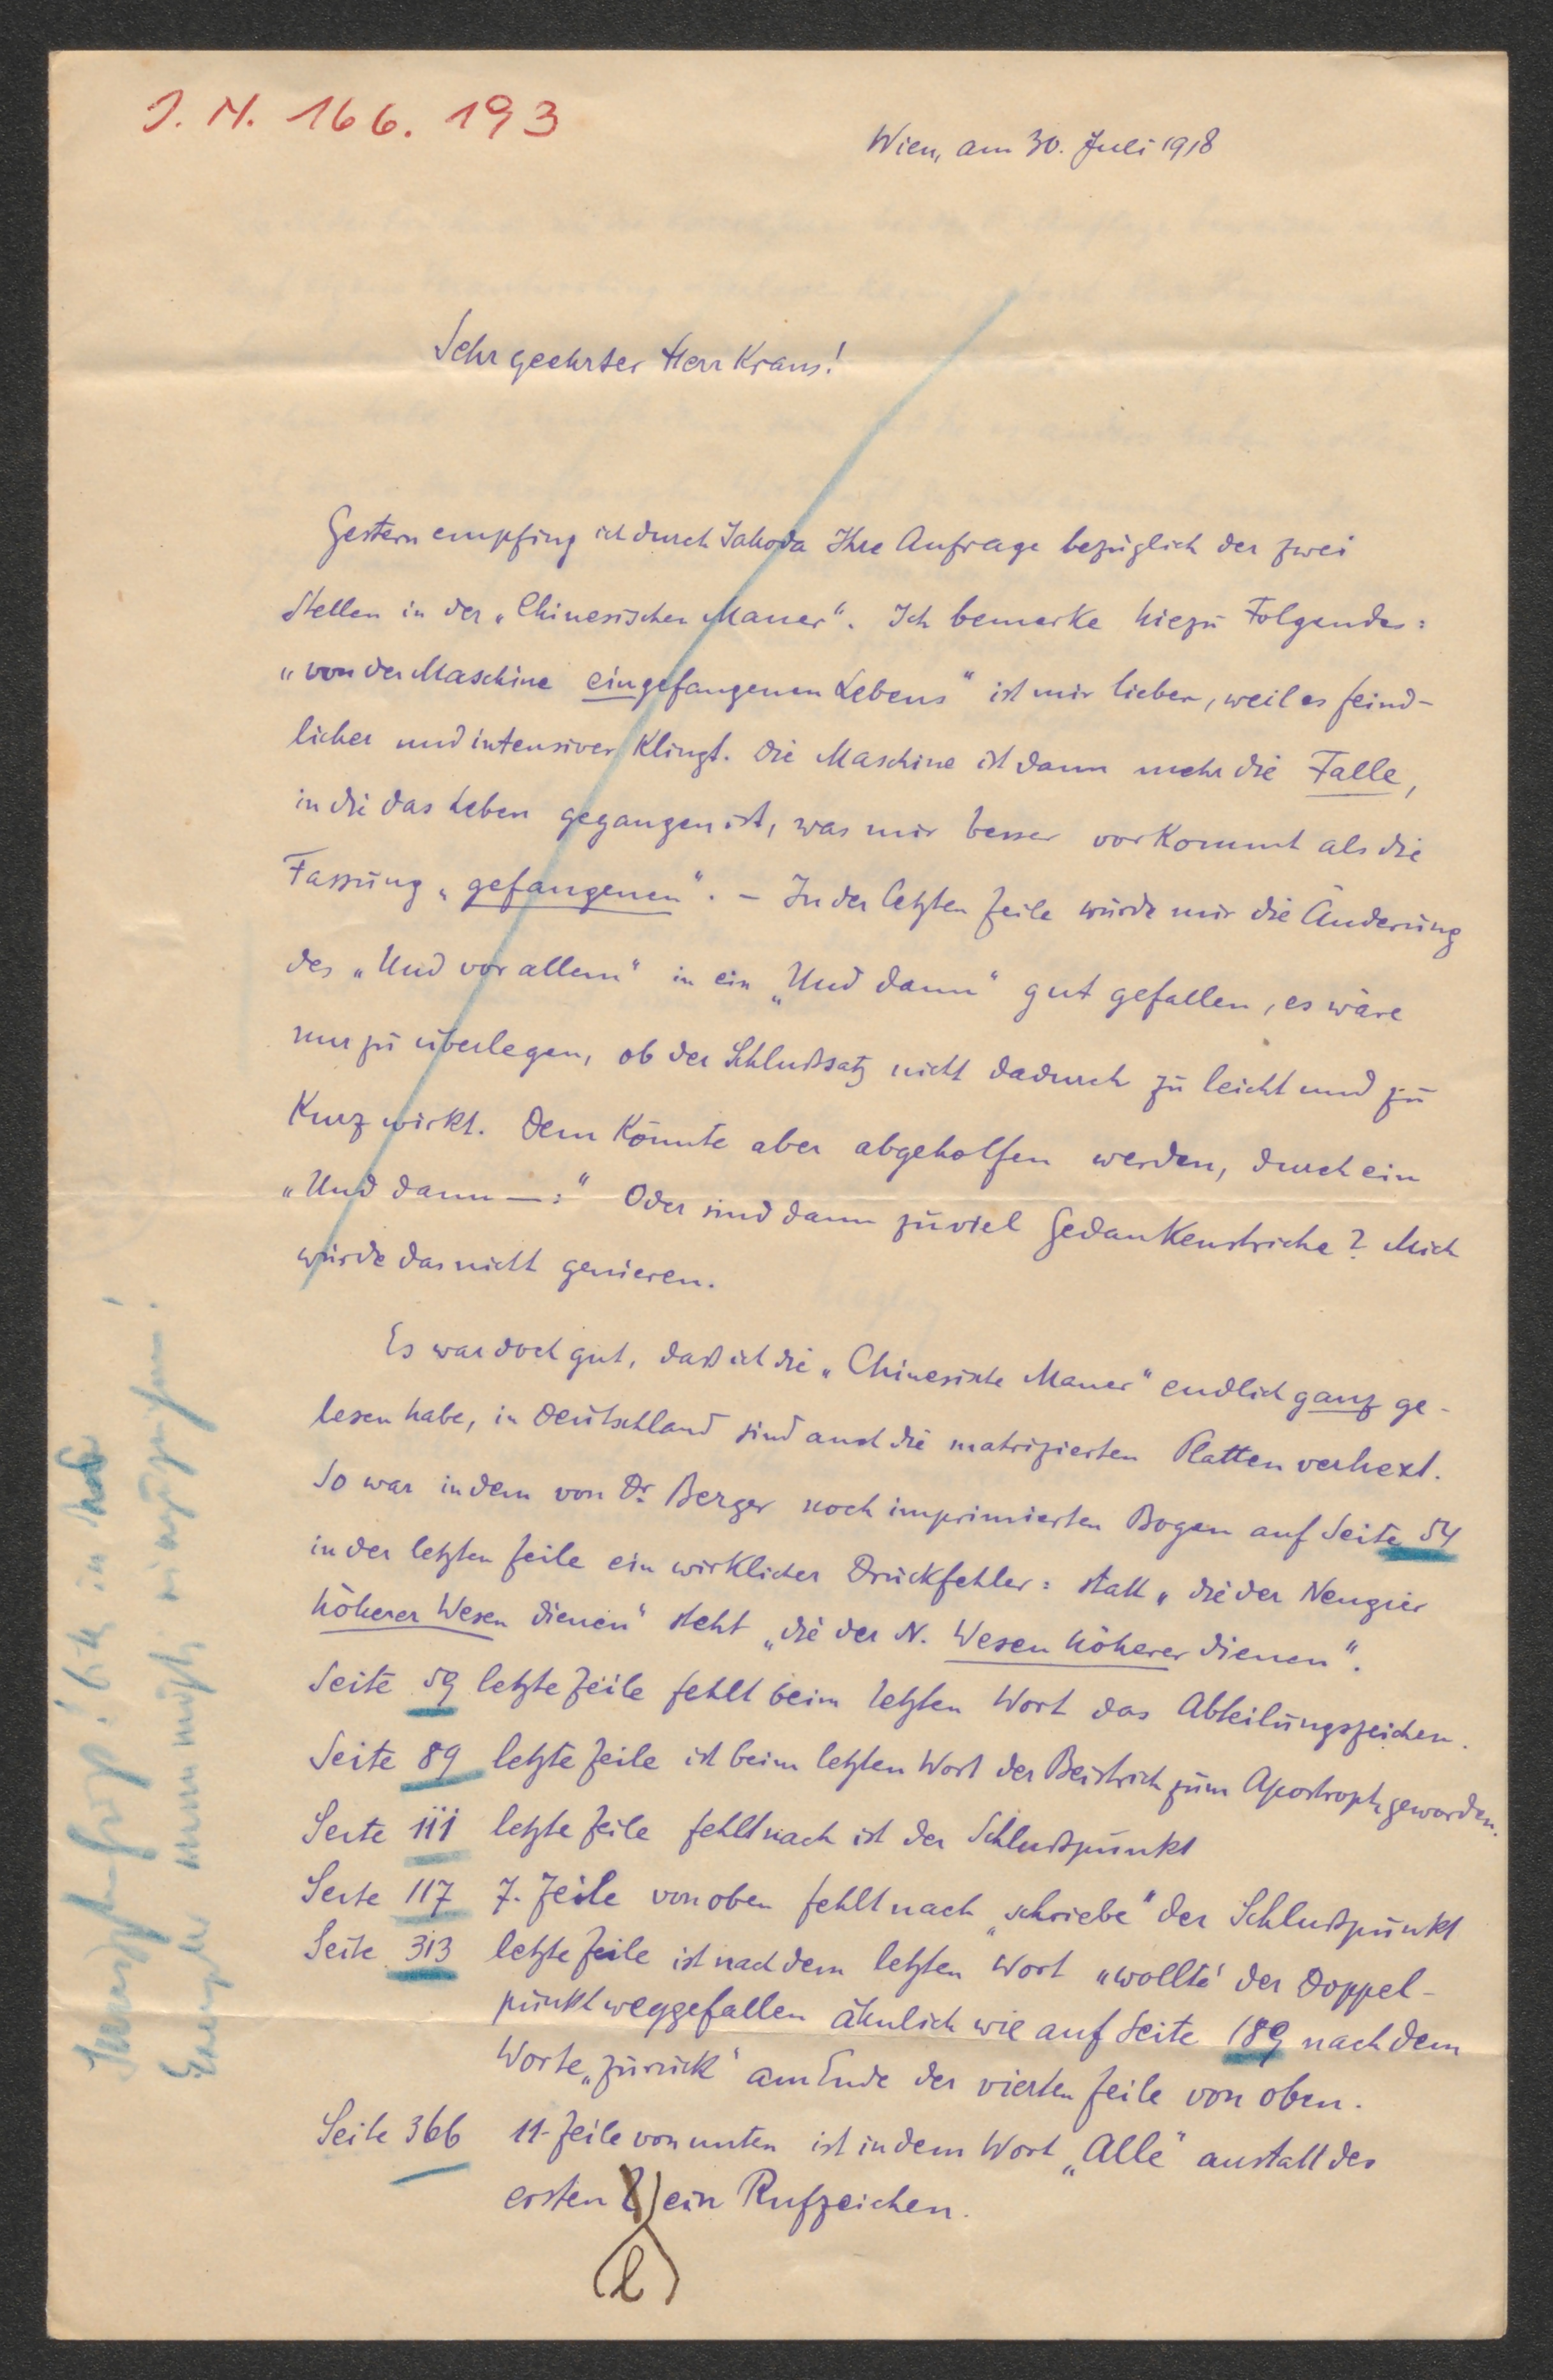 J. N. 166.193
Wien, am 30. Juli 1918
Sehr geehrter Herr Kraus!
Gestern empfing ich durch Jahoda Ihre Anfrage bezüglich der zwei
Stellen in der „Chinesischen Mauer“. Ich bemerke hiezu Folgendes:
„von der Maschine eingefangenen Lebens“ ist mir lieber, weil es feind-
licher und intensiver klingt. Die Maschine ist dann mehr die Falle,
in die das Leben gegangen ist, was mir besser vorkommt als die
Fassung „gefangenen“. – In der letzten Zeile würde mir die Änderung
des „Und vor allem“ in ein „Und dann“ gut gefallen, es wäre
nur zu überlegen, ob der Schlußsatz nicht dadurch zu leicht und zu
kurz wirkt. Dem könnte aber abgeholfen werden, durch ein
„Und dann —:“ Oder sind dann zuviel Gedankenstriche? Mich
würde das nicht genieren.
Es war doch gut, daß ich die „Chinesische Mauer“ endlich ganz ge-
lesen habe, in Deutschland sind auch die matrizierten Platten verhext.
So war in dem von Dr. Berger noch imprimierten Bogen auf Seite 54
in der letzten Zeile ein wirklicher Druckfehler: statt „die der Neugier
höherer Wesen dienen“ steht „die der N. Wesen höherer dienen“.
Seite 59 letzte Zeile fehlt beim letzten Wort das Abteilungszeichen.
Seite 89 letzte Zeile ist beim letzten Wort der Beistrich zum Apostroph geworden.
Seite 111 letzte Zeile fehlt nach ist der Schlußpunkt
Seite 117 7. Zeile von oben fehlt nach „schriebe“ der Schlußpunkt
Seite 313 letzte Zeile ist nach dem letzten Wort „wollte“ der Doppel-
punkt weggefallen ähnlich wie auf Seite 189 nach dem
Worte „zurück“ am Ende der vierten Zeile von oben.
Seite 366 11. Zeile von unten ist in dem Wort „Alle“ anstatt des
ersten l ein Rufzeichen.
l